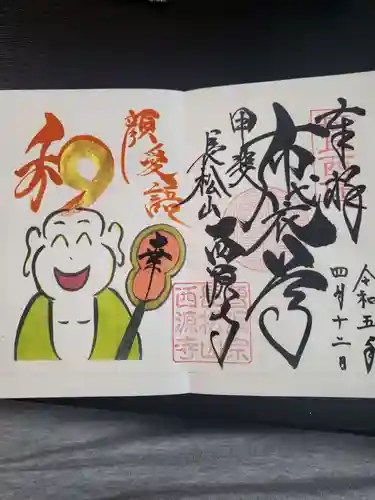 奉拝
令和五年
四月十二日
布袋尊
甲斐
長松山
西源寺
曹洞宗
長松山
西源寺
和
顔愛語
幸